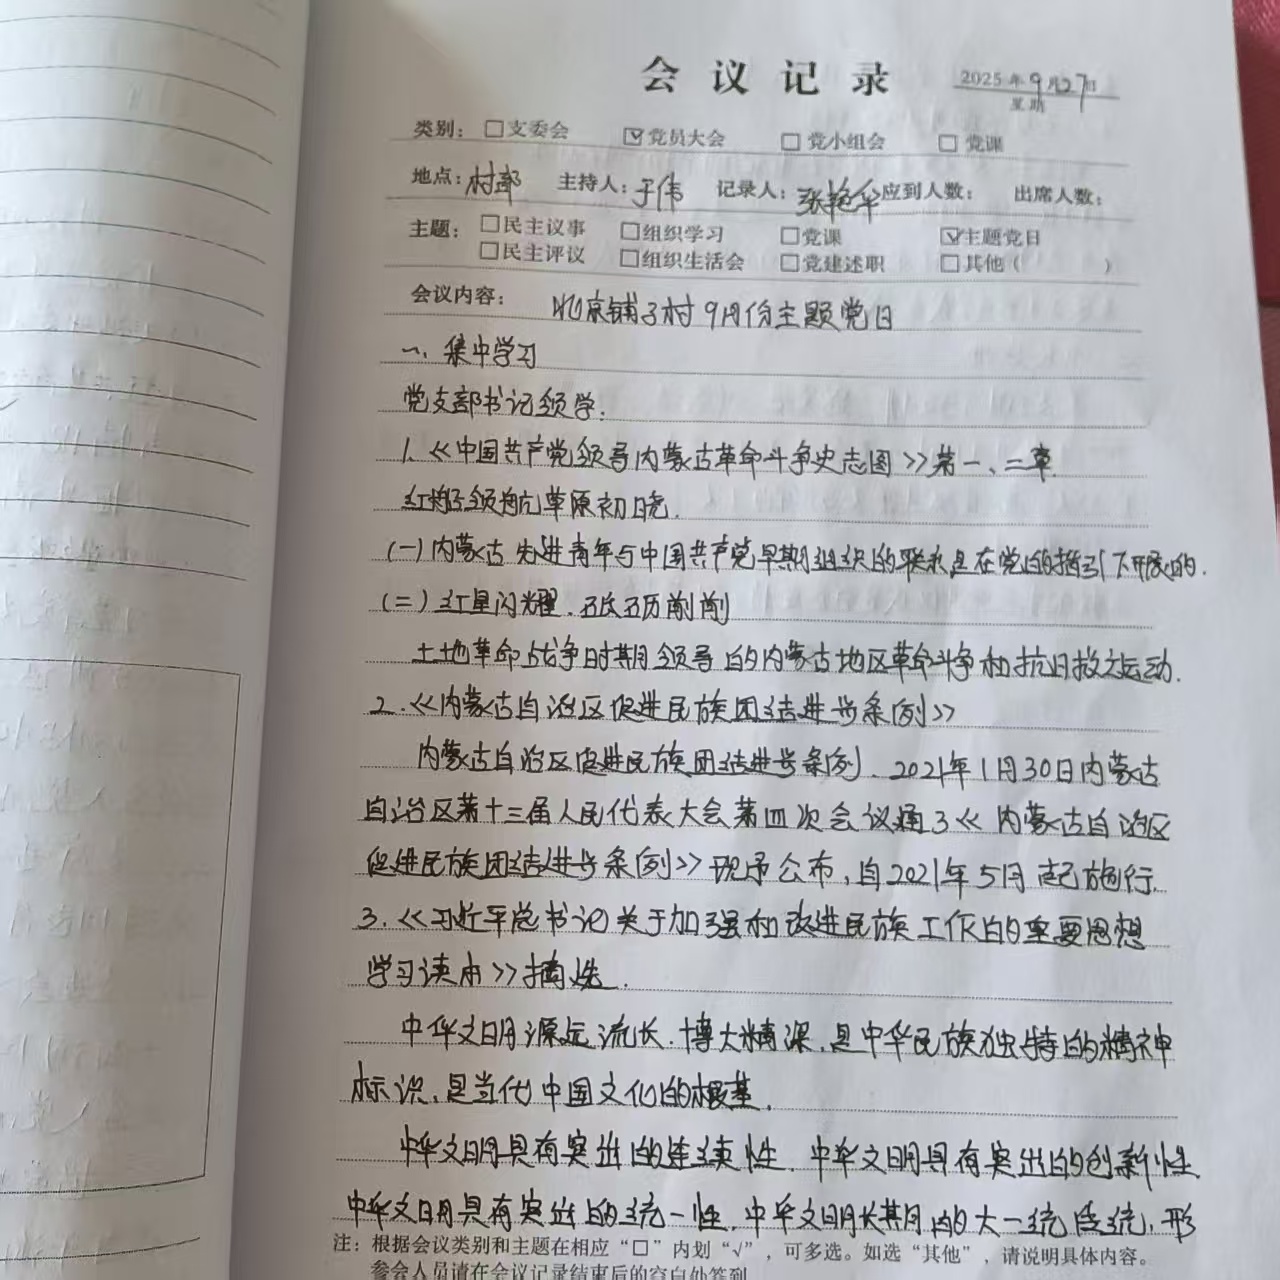 会议记录
2025年9月27日
星期
类别：□支委会 ☑党员大会 □党小组会 □党课
地点：村部 主持人：于伟 记录人：张艳华 应到人数： 出席人数：
主题：□民主议事 □组织学习 □党课 ☑主题党日
□民主评议 □组织生活会 □党建述职 □其他（ ）
会议内容： 北京铺子村9月份主题党日
一、集中学习
党支部书记领学.
1.《中国共产党领导内蒙古革命斗争史志图》第一、二章
红船领航草原初晓.
(一)内蒙古先进青年与中国共产党早期组织的联系是在党的指引下开展的.
(二)红星闪耀.
土地革命战争时期领导的内蒙古地区革命斗争和抗日救亡运动.
2.《内蒙古自治区促进民族团结进步条例》
内蒙古自治区促进民族团结进步条例、2021年1月30日内蒙古
自治区第十三届人民代表大会第四次会议通了《内蒙古自治区
促进民族团结进步条例》现予公布,自2021年5月起施行.
3.《习近平总书记关于加强和改进民族工作的重要思想
学习读本》摘选.
中华文明源远流长.博大精深.是中华民族独特的精神
标识,是当代中国文化的根基.
中华文明具有突出的连续性.中华文明具有突出的创新性
中华文明具有突出的统一性.中华文明长期的大一统传统,形
注：根据会议类别和主题在相应“□”内划“√”，可多选。如选“其他”，请说明具体内容。
参会人员请在会议记录结束后的空白处签到